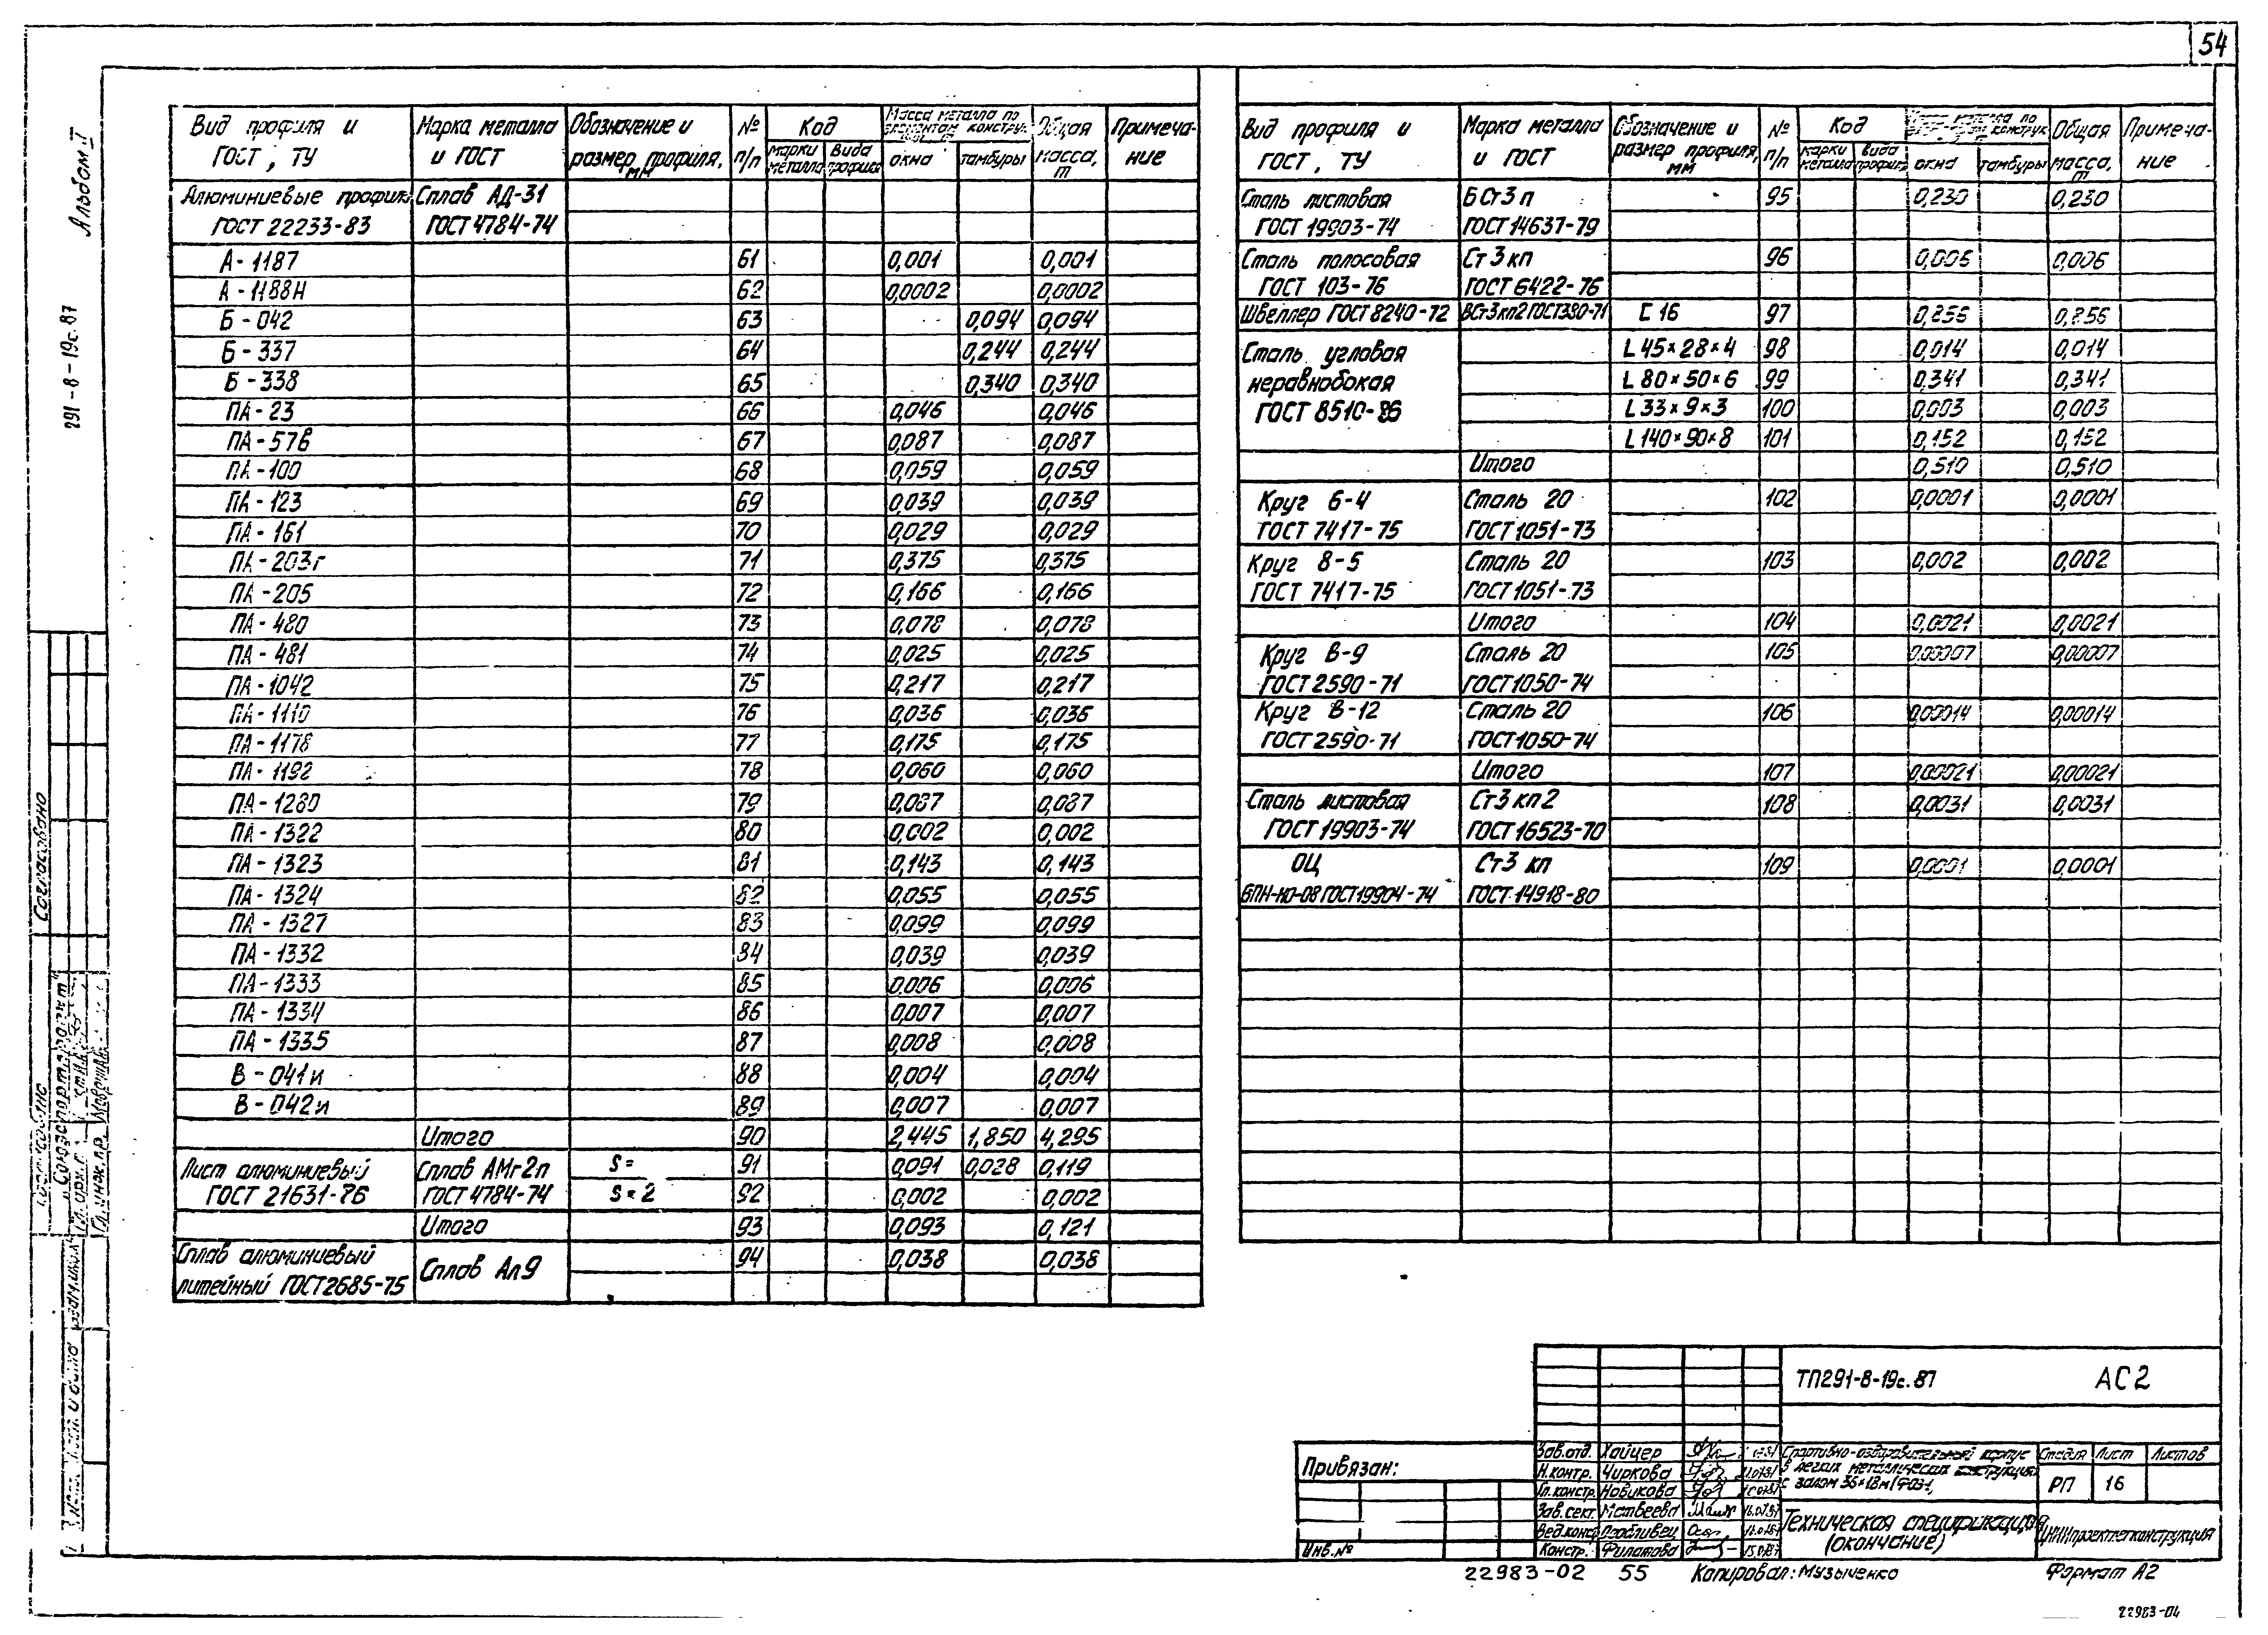 54
Альбом II
291-8-19с.87
Согласовано
Вид профиля и ГОСТ, ТУ | Марка металла и ГОСТ | Обозначение и размер профиля, мм | № п/п | Код | марки металла | вида профиля | Масса металла по элементам конструк. | окна | тамбуры | Общая масса, т | Примеча-ние
Алюминиевые профили Сплав АД-31
ГОСТ 22233-83 ГОСТ 4784-74
А-1187 61 0,001 0,001
А-1188Н 62 0,0002 0,0002
Б-042 63 0,094 0,094
Б-337 64 0,244 0,244
Б-338 65 0,340 0,340
ПА-23 66 0,046 0,046
ПА-57в 67 0,087 0,087
ПА-100 68 0,059 0,059
ПА-123 69 0,039 0,039
ПА-161 70 0,029 0,029
ПА-203г 71 0,375 0,375
ПА-205 72 0,166 0,166
ПА-480 73 0,078 0,078
ПА-481 74 0,025 0,025
ПА-1042 75 0,217 0,217
ПА-1110 76 0,036 0,036
ПА-1178 77 0,175 0,175
ПА-1192 78 0,060 0,060
ПА-1280 79 0,087 0,087
ПА-1322 80 0,002 0,002
ПА-1323 81 0,143 0,143
ПА-1324 82 0,055 0,055
ПА-1327 83 0,099 0,099
ПА-1332 84 0,039 0,039
ПА-1333 85 0,006 0,006
ПА-1334 86 0,007 0,007
ПА-1335 87 0,008 0,008
В-041и 88 0,004 0,004
В-042и 89 0,007 0,007
Итого 90 2,445 1,850 4,295
Лист алюминиевый Сплав АМг2п S= 91 0,091 0,028 0,119
ГОСТ 21631-76 ГОСТ 4784-74 S=2 92 0,002 0,002
Итого 93 0,093 0,121
Сплав алюминиевый Сплав Ал9 94 0,038 0,038
литейный ГОСТ 2685-75
Вид профиля и ГОСТ, ТУ | Марка металла и ГОСТ | Обозначение и размер профиля, мм | № п/п | Код | марки металла | вида профиля | окна | тамбуры | Общая масса, т | Примеча-ние
Сталь листовая БСт3п 95 0,230 0,230
ГОСТ 19903-74 ГОСТ 14637-79
Сталь полосовая Ст3кп 96 0,006 0,006
ГОСТ 103-76 ГОСТ 6422-76
Швеллер ГОСТ 8240-72 ВСт3кп2 ГОСТ 380-71 С 16 97 0,256 0,256
Сталь угловая L 45×28×4 98 0,014 0,014
неравнобокая L 80×50×6 99 0,341 0,341
ГОСТ 8510-86 L 33×9×3 100 0,003 0,003
L 140×90×8 101 0,152 0,152
Итого 0,510 0,510
Круг 6-4 Сталь 20 102 0,0001 0,0001
ГОСТ 7417-75 ГОСТ 1051-73
Круг 8-5 Сталь 20 103 0,002 0,002
ГОСТ 7417-75 ГОСТ 1051-73
Итого 104 0,0021 0,0021
Круг В-9 Сталь 20 105 0,00007 0,00007
ГОСТ 2590-71 ГОСТ 1050-74
Круг В-12 Сталь 20 106 0,00014 0,00014
ГОСТ 2590-71 ГОСТ 1050-74
Итого 107 0,00021 0,00021
Сталь листовая Ст3кп2 108 0,0031 0,0031
ГОСТ 19903-74 ГОСТ 16523-70
ОЦ Ст3 кп 109 0,0001 0,0001
БПН-НО-08 ГОСТ 19904-74 ГОСТ 14918-80
ТП291-8-19с.87 АС2
Привязан:
Инв.№
Зав.отд. Хайцер
Н.контр. Чиркова
Гл.констр. Новикова
Зав.сект. Матвеева
Вед.конс
Констр. Филатова
Спортивно-оздоровительный корпус
в легких металлических конструкциях
с залом 36×18м
Стадия Лист Листов
РП 16
Техническая спецификация
(окончание)
ЦНИИпроектлегконструкция
22983-02 55 Копировал: Музыченко Формат А2
22983-04